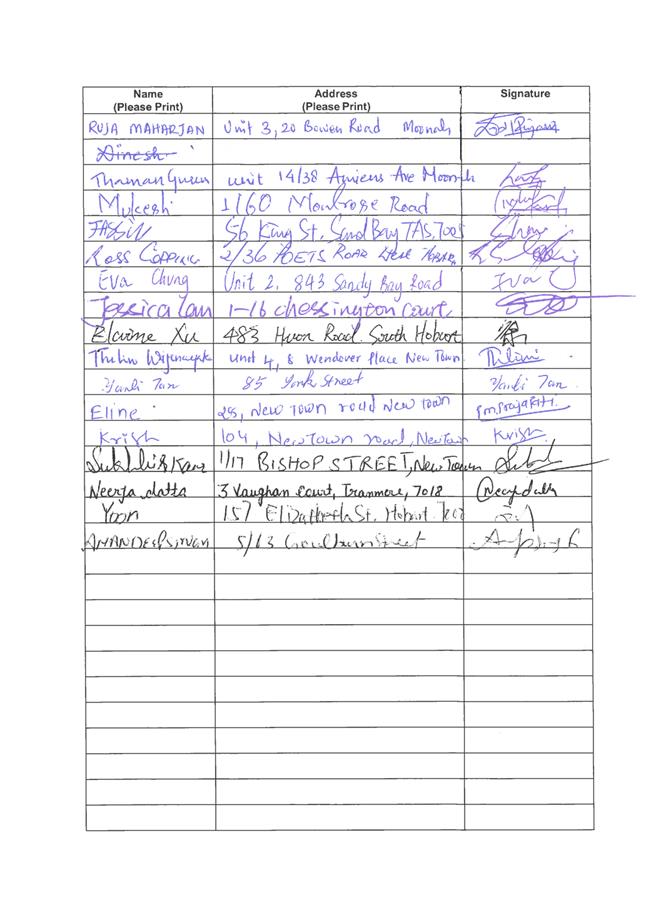 Name Address Signature
(Please Print) (Please Print)
RUJA MAHARJAN Unit 3, 20 Bowen Road Moonah
Dinesh
Thaman Gurun unit 14/38 Amiens Ave Moonah
Mukesh 1/60 Montrose Road
56 King St, Sand Bay TAS, 7005
Ross COPPING 2/36 POETS ROAD West Hobart
Eva Chung Unit 2, 843 Sandy Bay Road Eva C
Jessica Lam 1-16 chessington court,
Elavine Xu 483 Huon Road. South Hobart
Unit 4, 8 Wendover Place New Town
Yanli Tan 85 York Street Yanli Tan
Eline 25, New Town road New Town
Krish 104, New Town road, NewTown Krish
1/17 BISHOP STREET, New Town
Neerja datta 3 Vaughan court, Tranmere, 7018
Yoon 157 Elizabeth St. Hobart
5/13 Street